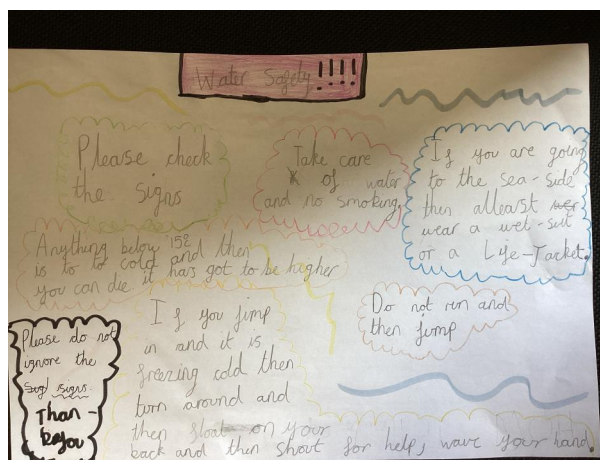 Water Safety!!!!
Please check
the signs
Take care
of water
and no smoking.
If you are going
to the sea-side
then atleast
wear a wet-suit
or a Life-Jacket.
Anything below 15°
is to to cold and then
you can die it has got to be higher
Do not run and
then jump
If you jimp
in and it is
freezing cold then
turn around and
then float on your
back and then shout for help, wave your hand.
Please do not
ignore the
signs.
Than-
kyou